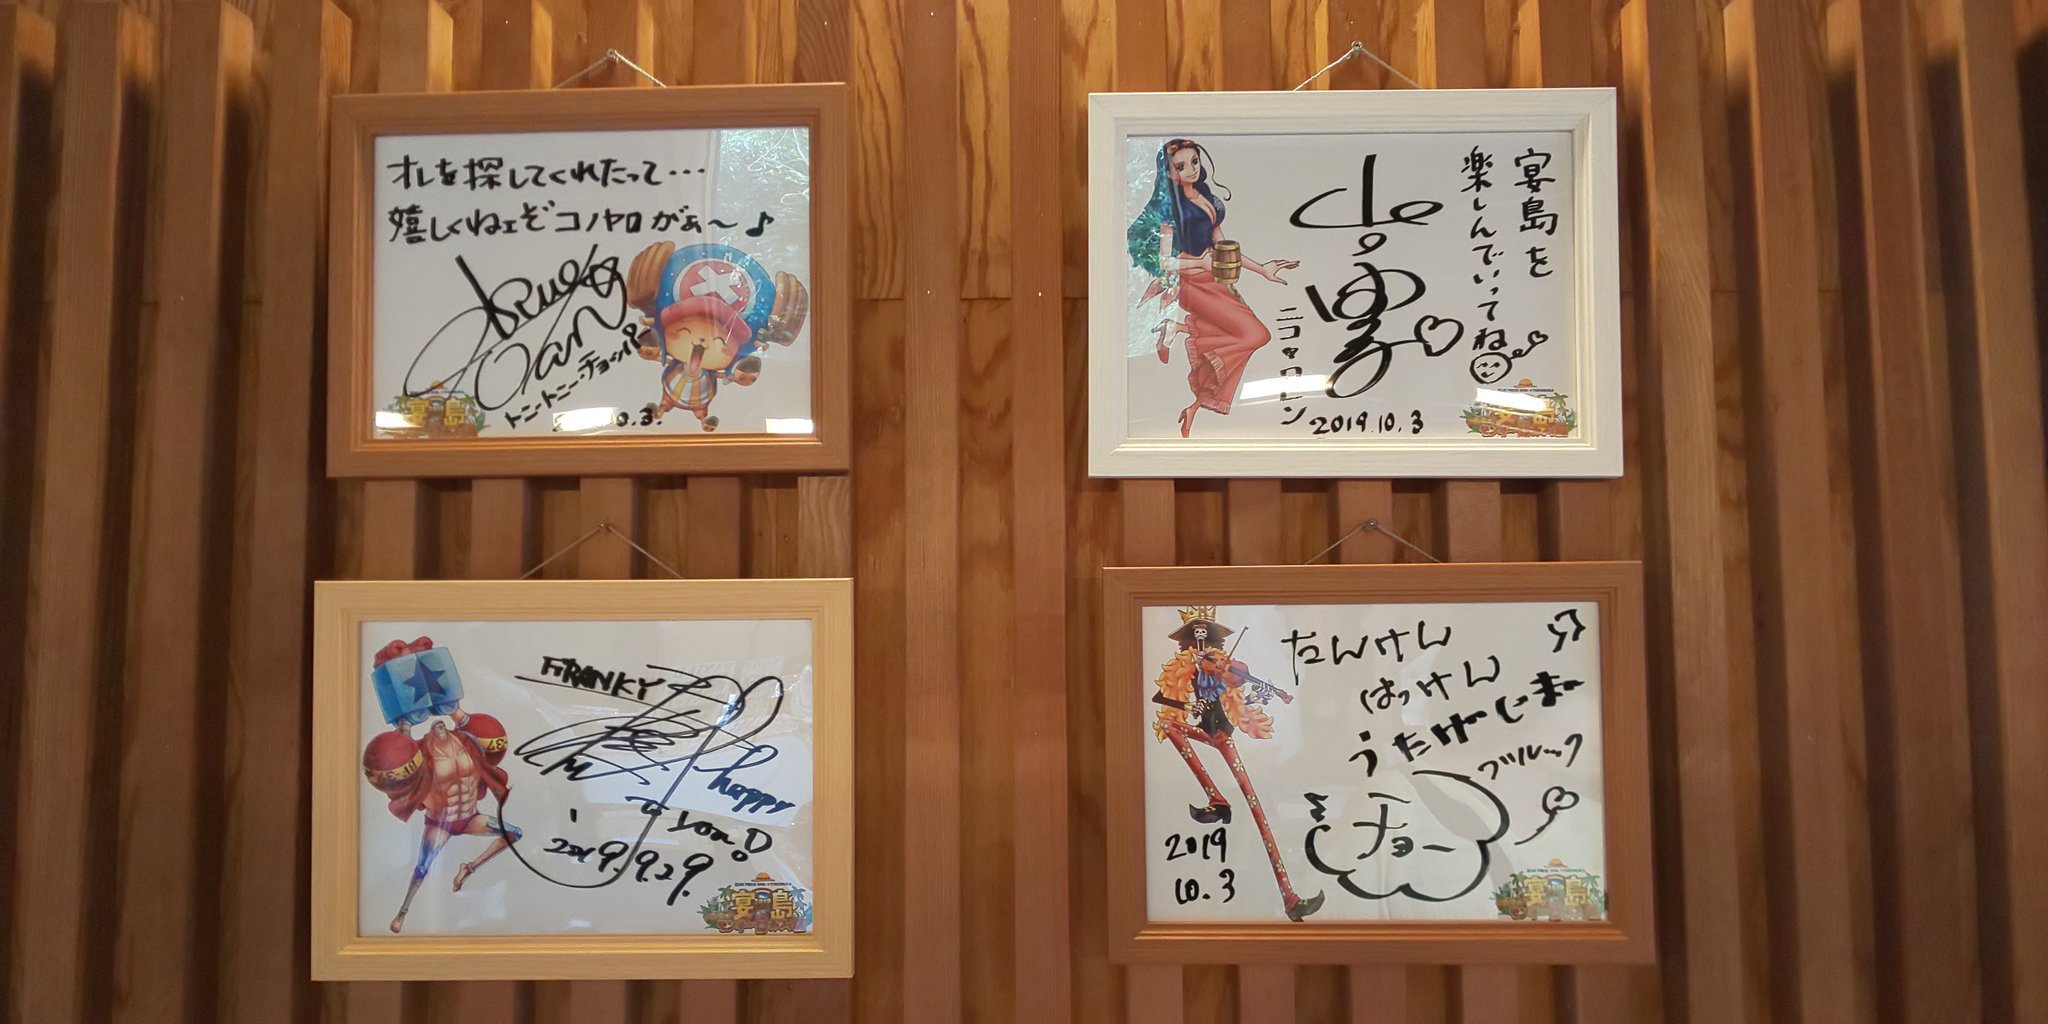 オレを探してくれたって…
嬉しくねェぞコノヤロがぁ〜♪
トニートニー・チョッパー
宴島
宴島を
楽しんでいってね
ニコ・ロビン
2019.10.3
FRANKY
happy
to you!
2019.9.29.
BF-37
宴島
たんけん
はっけん
うたげじまー
ブルック
チョー
2019
10.3
宴島